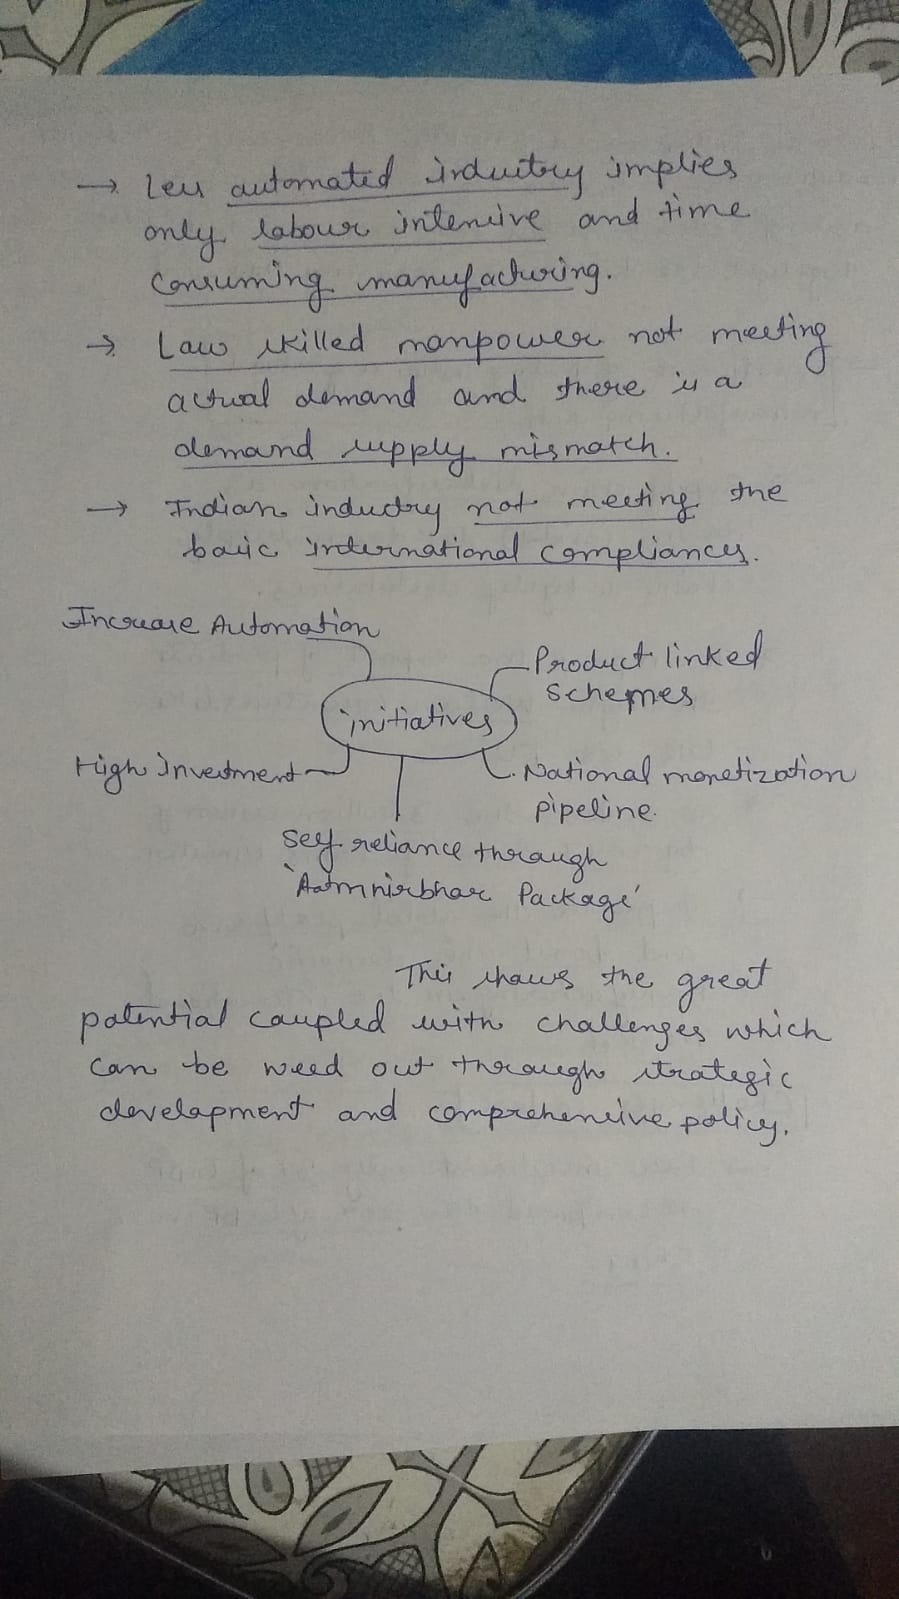 → Less automated industry implies
only labour intensive and time
consuming manufacturing.
→ Low skilled manpower not meeting
actual demand and there is a
demand supply mismatch.
→ Indian industry not meeting the
basic international compliances.
Increase Automation
Product linked
schemes
initiatives
High investment
National monetization
pipeline
Self reliance through
'Aatmnirbhar Package'
This shows the great
potential coupled with challenges which
can be weed out through strategic
development and comprehensive policy.